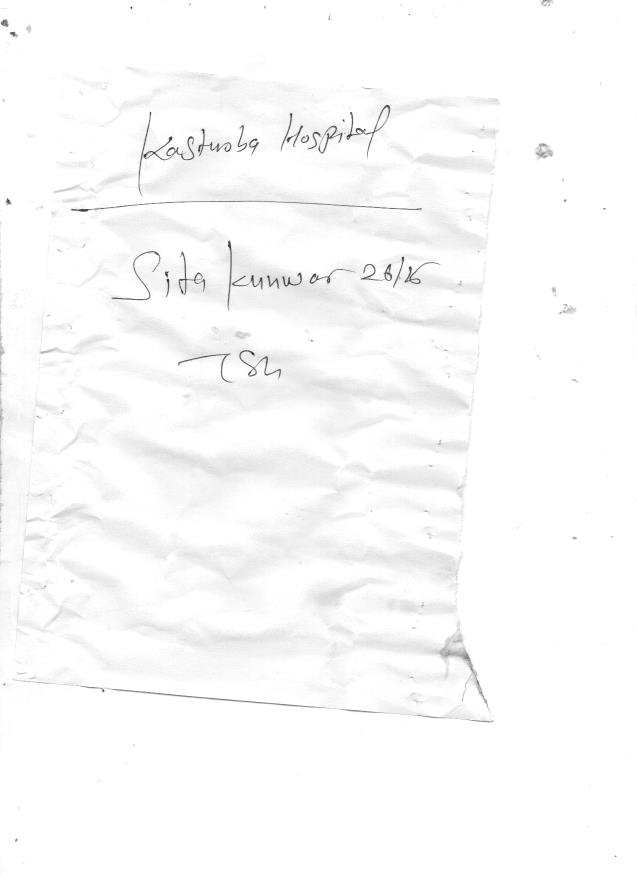 Kasturba Hospital
Sita Kunwar 26/F
TSH